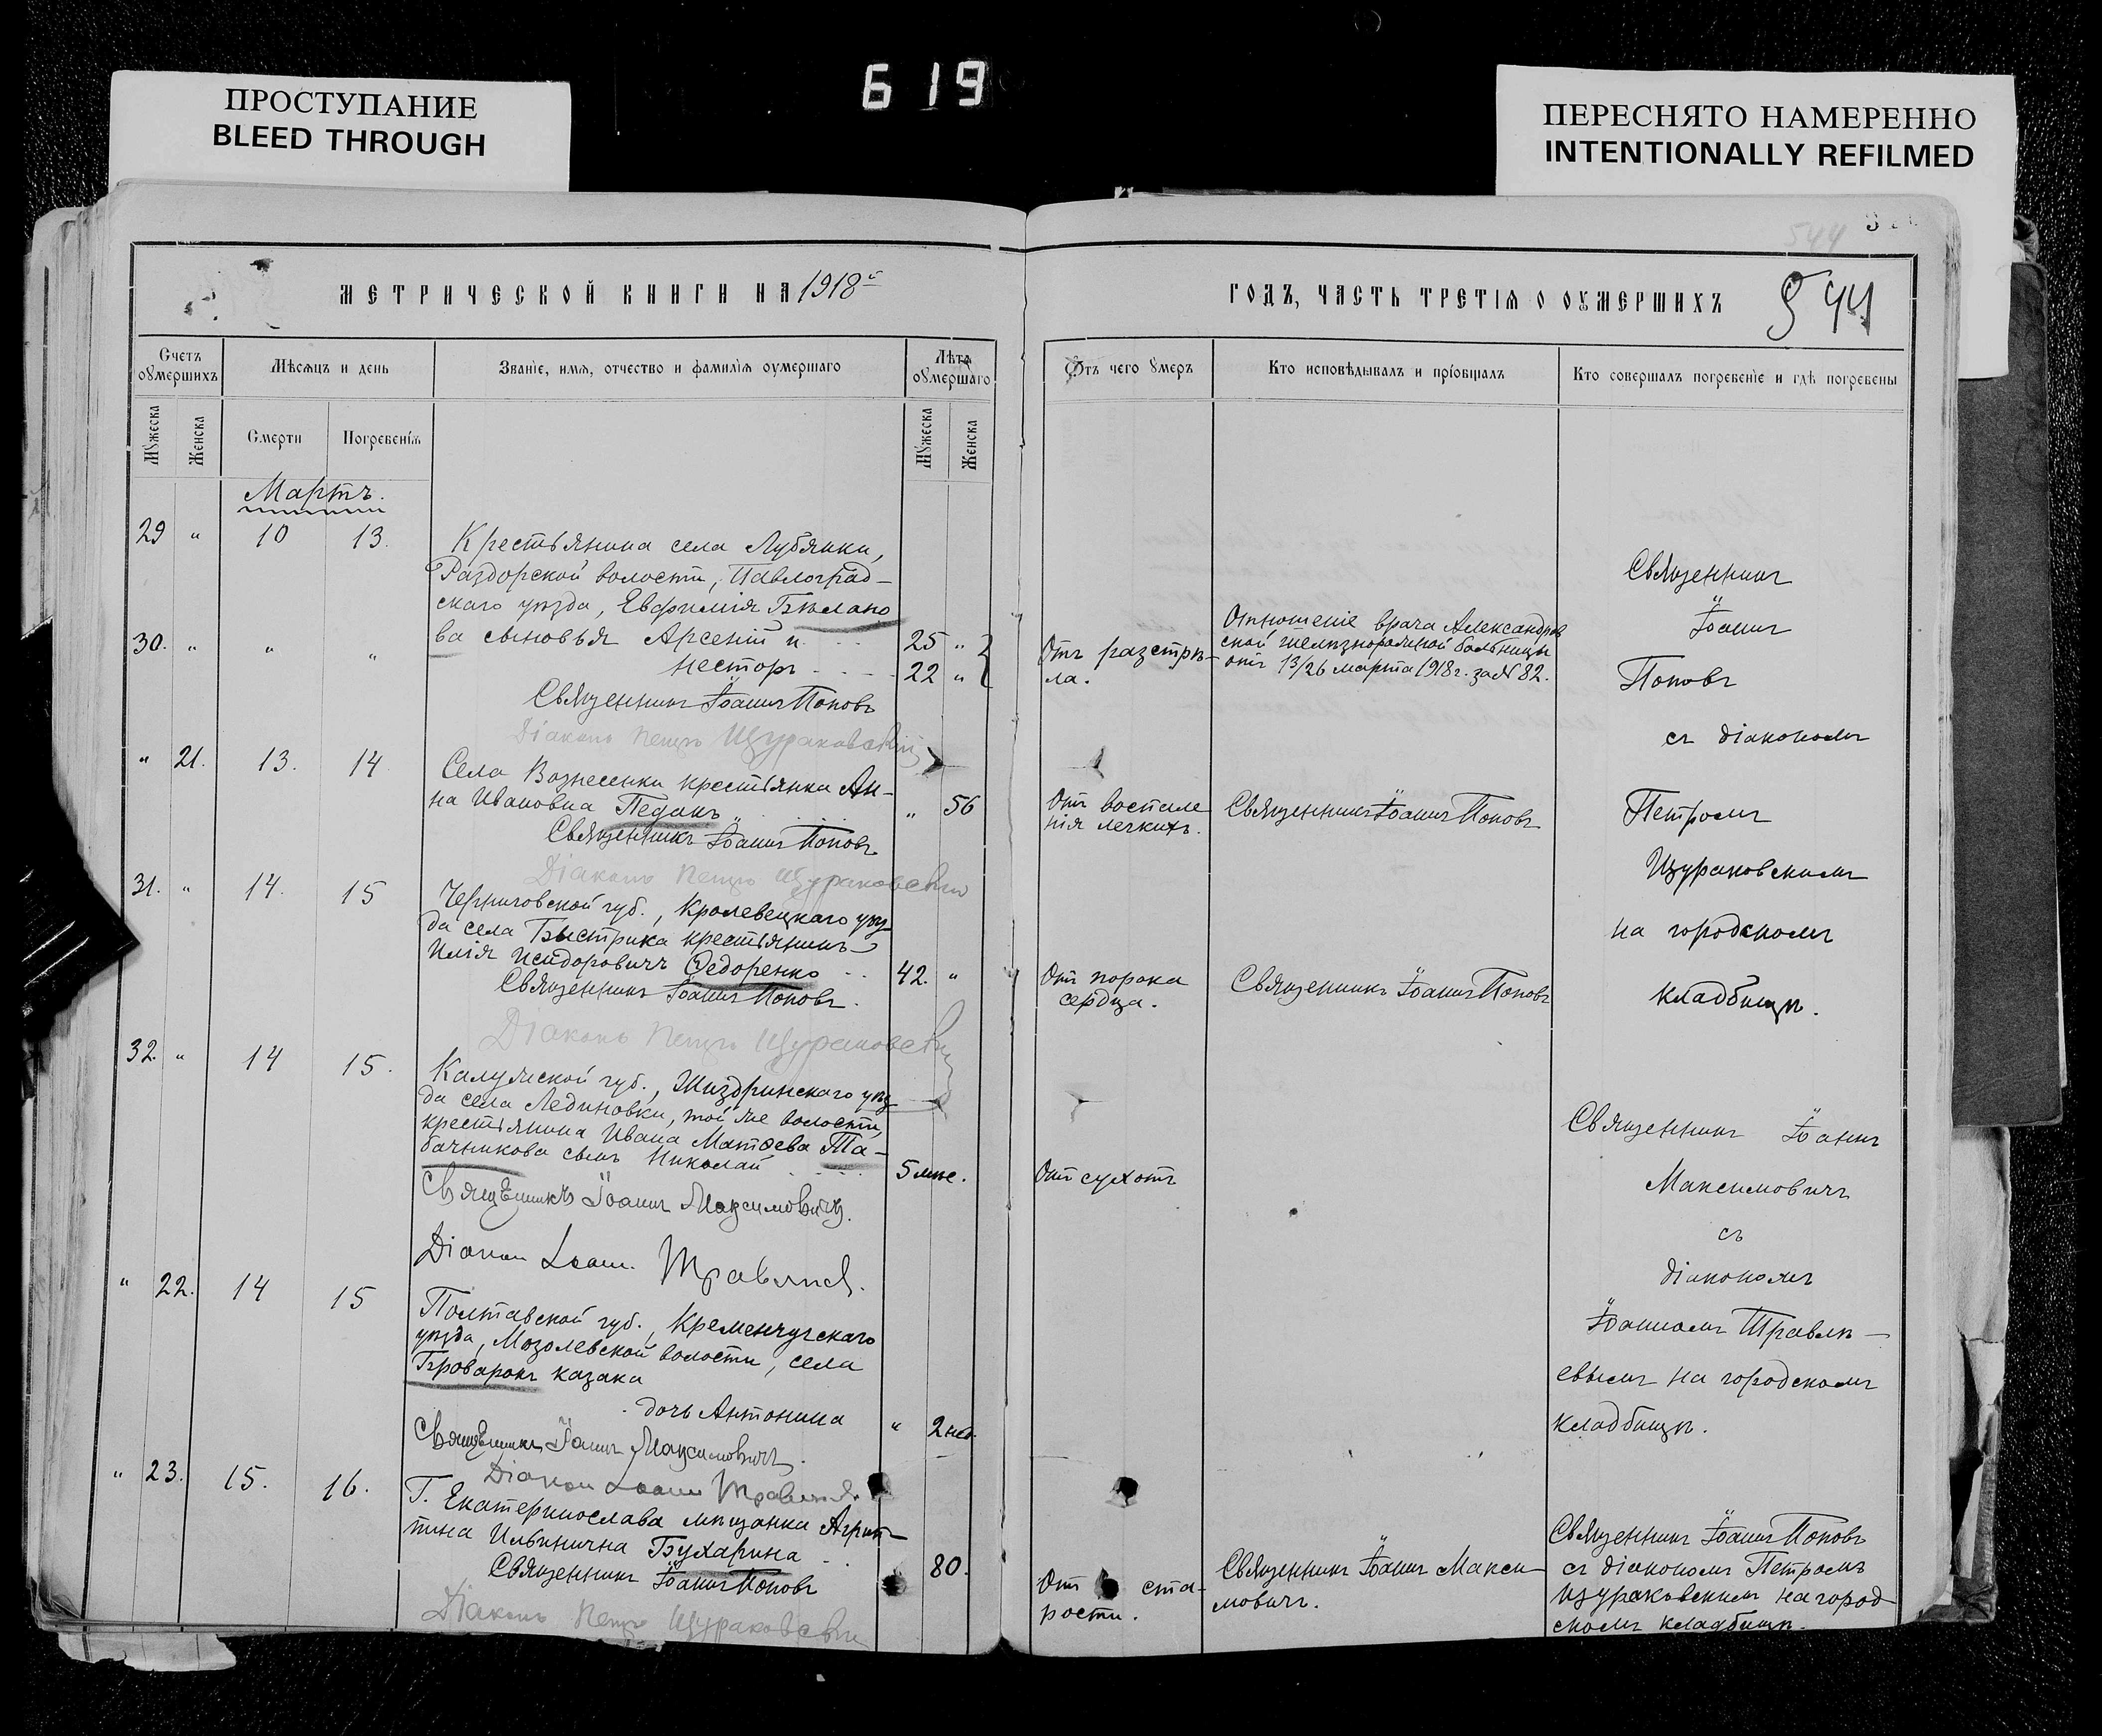 619
ПРОСТУПАНИЕ
BLEED THROUGH
ПЕРЕСНЯТО НАМЕРЕННО
INTENTIONALLY REFILMED
544
МЕТРИЧЕСКОЙ КНИГИ НА 1918й
ГОДЪ, ЧАСТЬ ТРЕТІЯ О ОУМЕРШИХЪ
544
Счетъ оумершихъ
Мѣсяцъ и день
Званіе, имя, отчество и фамилія оумершаго
Лѣта оумершаго
Отъ чего умеръ
Кто исповѣдывалъ и пріобщалъ
Кто совершалъ погребеніе и гдѣ погребены
Мужеска
Женска
Смерти
Погребенія
Мужеска
Женска
Мартъ.
29 " 10 13.
Крестьянина села Лубянки,
Раздорской волости, Павлоград-
скаго уѣзда, Евфимія Бѣлано
30. " " "
ва сыновья Арсеній и 25 "
Несторъ 22 "
Отъ разстрѣ-
ла.
Отношеніе врача Александров
ской желѣзнодорожной больницы
отъ 13/26 марта 1918 г. за № 82.
Священникъ Іоаннъ Поповъ
Діаконъ Петръ Щураковскій
Священникъ
Іоаннъ
Поповъ
съ діакономъ
Петромъ
Щураковскимъ
на городскомъ
кладбищѣ.
" 21. 13. 14
Села Вознесенки крестьянка Ан-
на Ивановна Педанъ " 56
Отъ воспале
нія легкихъ.
Священникъ Іоаннъ Поповъ
Священникъ Іоаннъ Поповъ.
Діаконъ Петръ Щураковскій
31. " 14. 15
Черниговской губ., Кролевецкаго уѣз-
да села Быстрика крестьянинъ
Илія Исидоровичъ Ѳедоренко 42. "
Отъ порока
сердца.
Священникъ Іоаннъ Поповъ
Священникъ Іоаннъ Поповъ.
Діаконъ Петръ Щураковскій
32. " 14 15.
Калужской губ., Жиздринскаго уѣз-
да села Лединовки, той же волости,
крестьянина Ивана Матѳева Та-
бачникова сынъ Николай 5 мѣс.
Отъ сухотъ
Священникъ Іоаннъ Максимовичъ.
Діаконъ Іоаннъ
Священникъ Іоаннъ
Максимовичъ
съ
діакономъ
Іоанномъ Травлѣ-
евымъ на городскомъ
кладбищѣ.
" 22. 14 15
Полтавской губ., Кременчугскаго
уѣзда, Мозолевской волости, села
Броварокъ казака
дочь Антонина " 2 нед.
Священникъ Іоаннъ Максимовичъ.
Діаконъ Іоаннъ
" 23. 15. 16.
Г. Екатеринослава мѣщанка Агрип-
пина Ильинична Бухарина 80.
Отъ ста-
рости.
Священникъ Іоаннъ Макси-
мовичъ.
Священникъ Іоаннъ Поповъ
Діаконъ Петръ Щураковскій
Священникъ Іоаннъ Поповъ
съ діакономъ Петромъ
Щураковскимъ на город-
скомъ кладбищѣ.